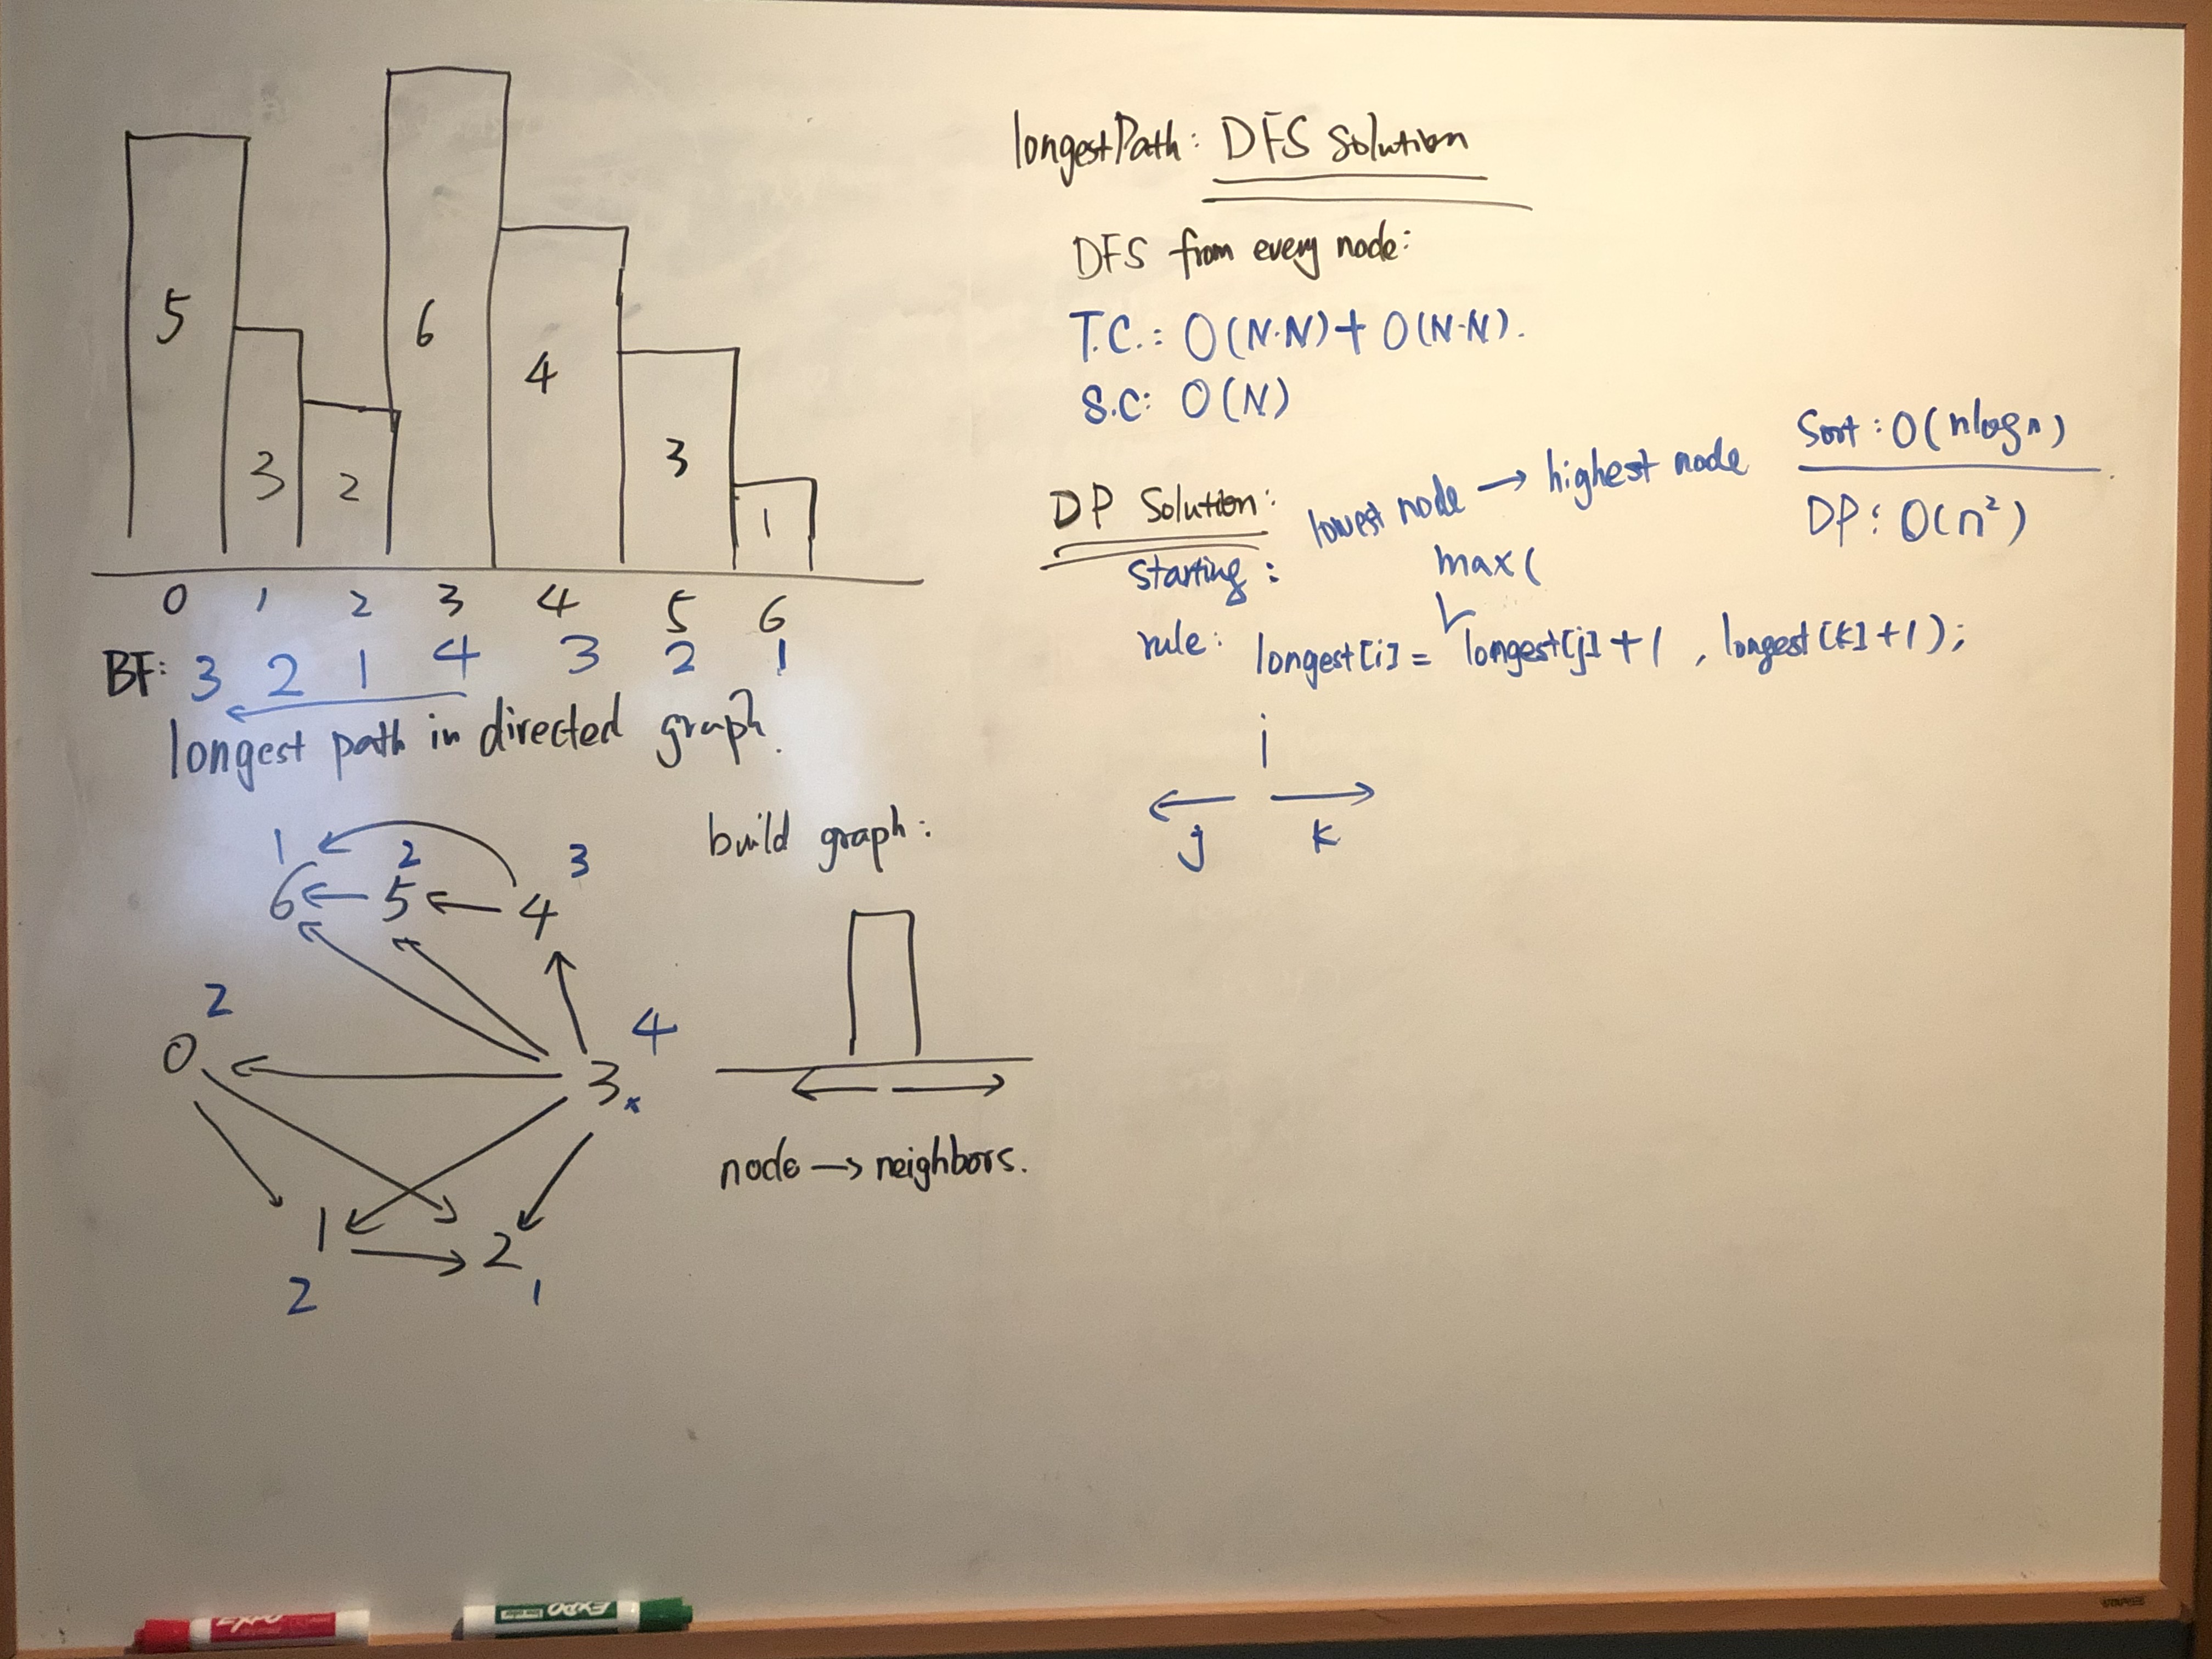 5
3
2
6
4
3
1
0 1 2 3 4 5 6
BF: 3 2 1 4 3 2 1
longest path in directed graph.
1 2 3
6 5 4
2
0
4
3x
1 2
2 1
build graph:
node → neighbors.
longestPath: DFS Solution
DFS from every node:
T.C.: O(N·N)+ O(N·N).
S.C: O(N)
DP Solution:
lowest node → highest node
Sort: O(nlogn)
DP: O(n²)
Starting:
max(
rule: longest[i] = longest[j]+1 , longest[k]+1);
i
j k
EXPO
EXPO
STAPLES